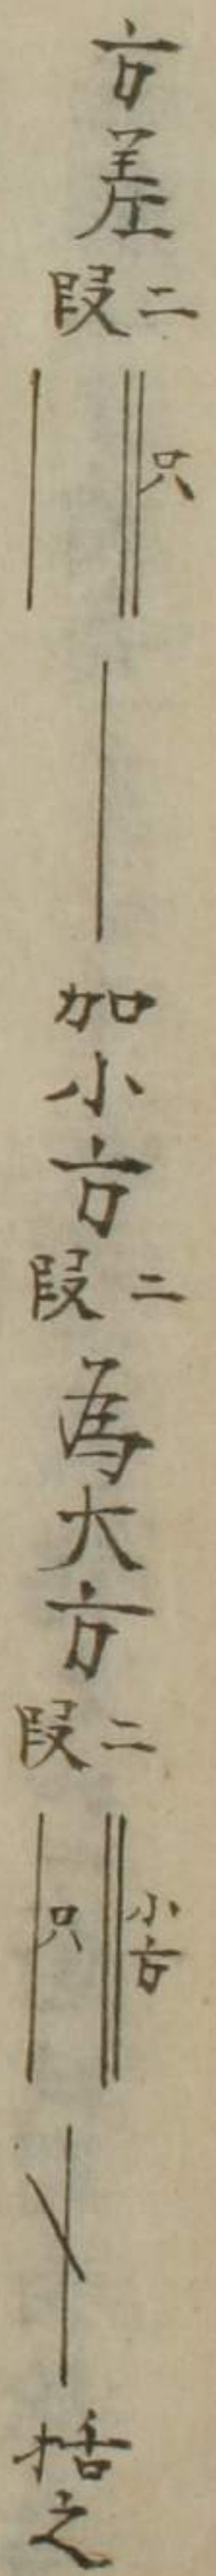 方差二段 只 加小方二段為大方二段 小方 只 括之